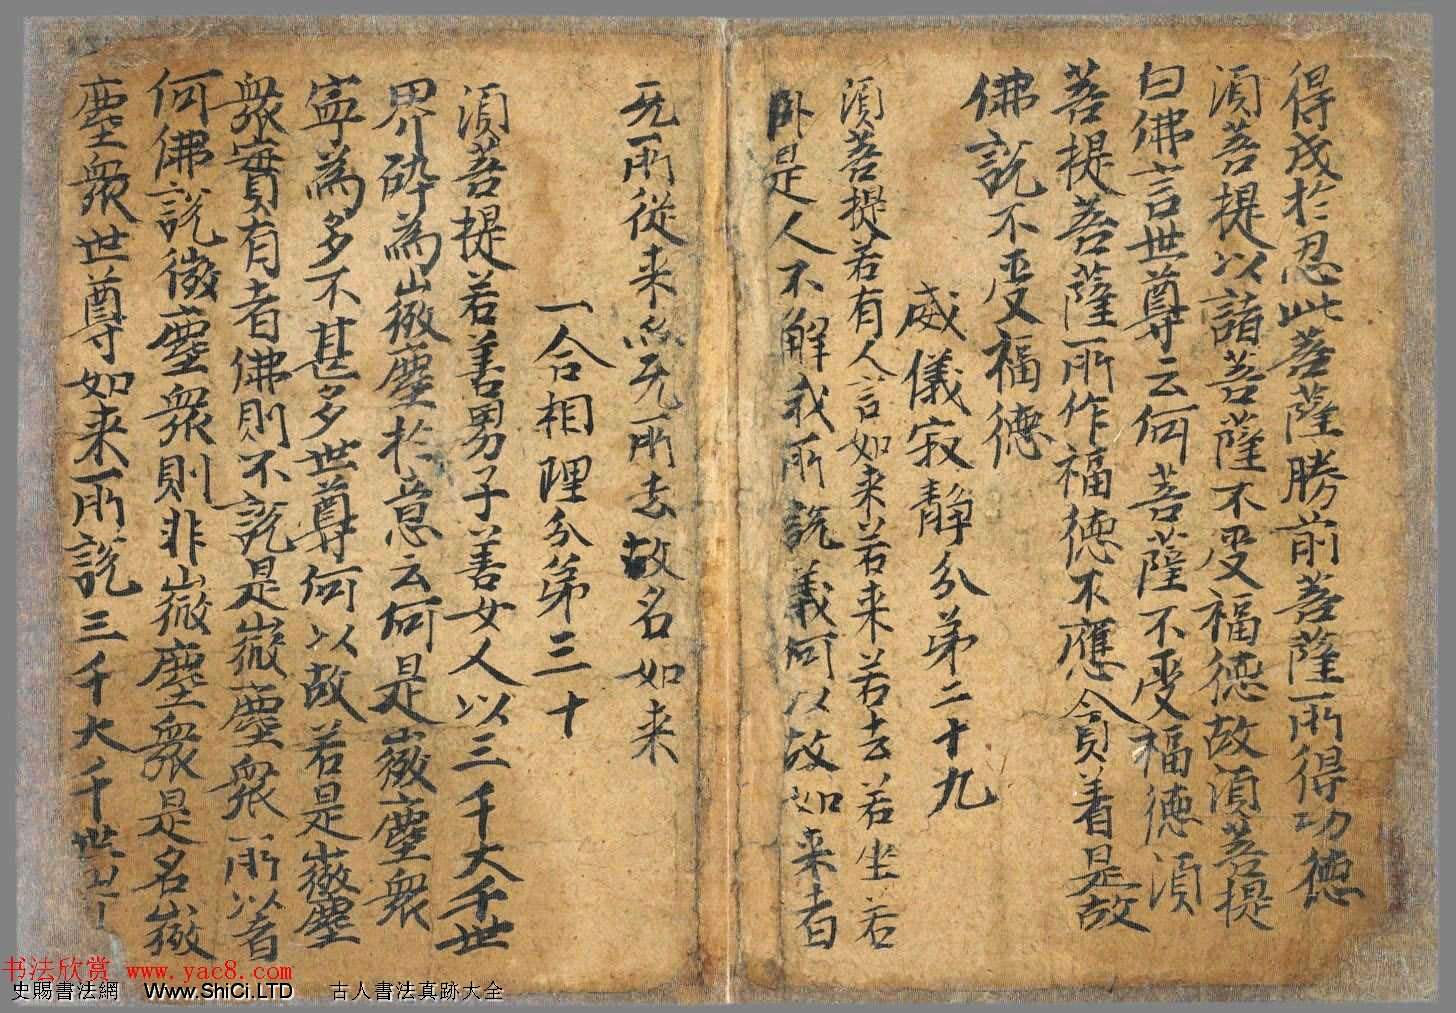 得成於忍此菩薩勝前菩薩所得功德
須菩提以諸菩薩不受福德故須菩提
白佛言世尊云何菩薩不受福德須
菩提菩薩所作福德不應貪著是故
佛說不受福德
威儀寂靜分第二十九
須菩提若有人言如来若来若去若坐若
卧是人不解我所說義何以故如来者
无所從来亦无所去故名如来
一合相理分第三十
須菩提若善男子善女人以三千大千世
界碎為微塵於意云何是微塵衆
寧為多不甚多世尊何以故若是微塵
衆實有者佛則不說是微塵衆所以者
何佛說微塵衆則非微塵衆是名微
塵衆世尊如来所說三千大千世界
书法欣赏 www.yac8.com
史賜書法網 Www.ShiCi.LTD 古人書法真跡大全